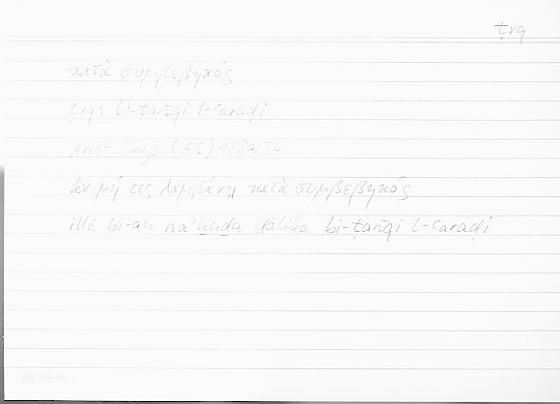 ṭrq
κατὰ συμβεβηκός
ṭrq: bi-ṭarīqi l-ʿaraḍi
Arist. Phys (AI)
ἂν μή τις λαμβάνῃ κατὰ συμβεβηκός
illā bi-an naʾḫuḏa ḏālika bi-ṭarīqi l-ʿaraḍi